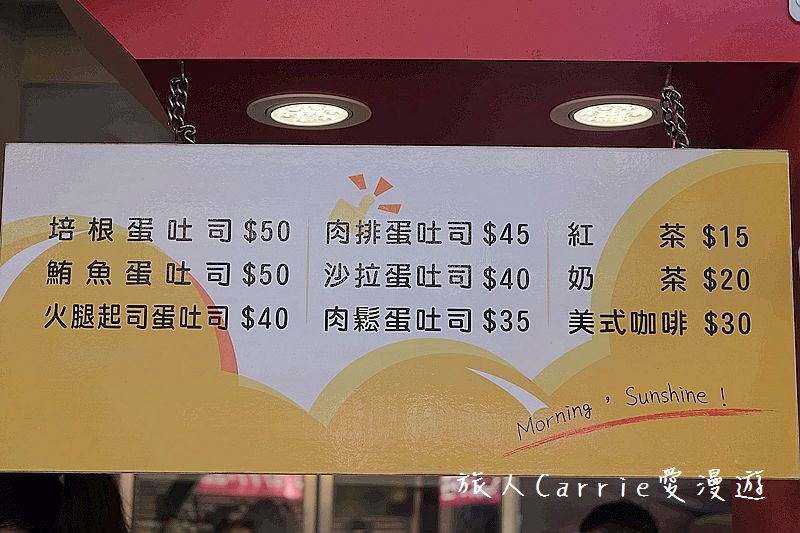 培根蛋吐司 $50
鮪魚蛋吐司 $50
火腿起司蛋吐司 $40
肉排蛋吐司 $45
沙拉蛋吐司 $40
肉鬆蛋吐司 $35
紅茶 $15
奶茶 $20
美式咖啡 $30
Morning, Sunshine!
旅人Carrie愛漫遊